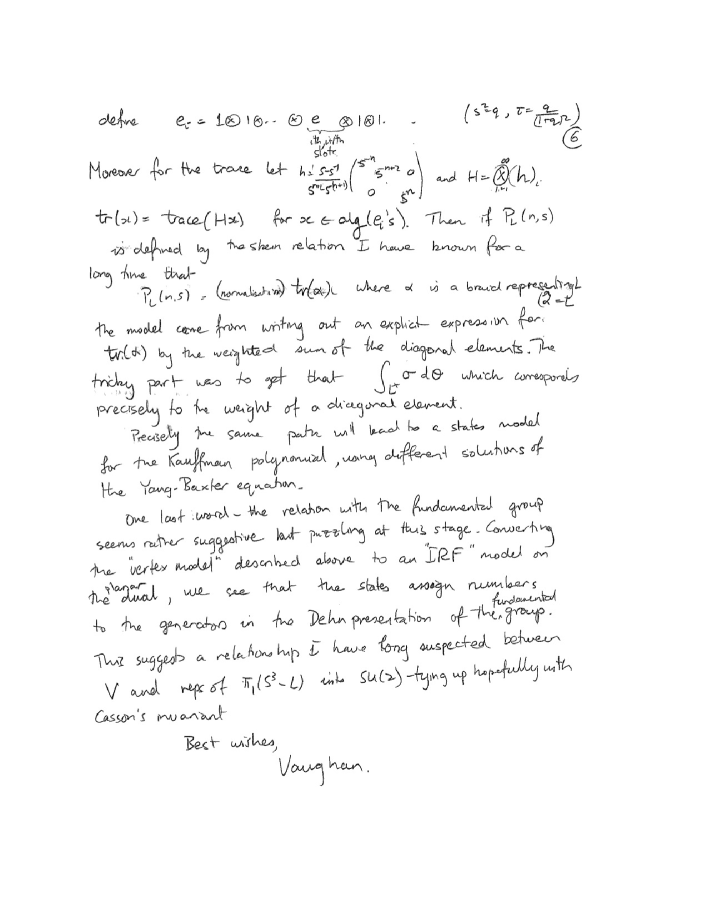 define e_i = 1⊗1⊗.. ⊗ e ⊗1⊗1. . (s²=q, τ= q/(1+q)²)
ith, i+1th slots.
6
Moreover for the trace let h = (s-s⁻¹)/(sⁿ⁺¹-s⁻ⁿ⁻¹) (s⁻ⁿ s⁻ⁿ⁺² 0 0 sⁿ) and H = ⊗_{i=1}^∞ (h)_i
tr(x) = trace(Hx) for x ∈ alg(e_i's). Then if P_L(n,s)
is defined by the skein relation I have known for a
long time that
P_L(n,s) = (normalization) tr(α), where α is a braid representing L
(α̂ = L
the model came from writing out an explicit expression for
tr(α) by the weighted sum of the diagonal elements. The
tricky part was to get that ∫_L σ dθ which corresponds
precisely to the weight of a diagonal element.
Precisely the same path will lead to a states model
for the Kauffman polynomial, using different solutions of
the Yang-Baxter equation.
One last word - the relation with the fundamental group
seems rather suggestive but puzzling at this stage. Converting
the "vertex model" described above to an "IRF" model on
the planar dual, we see that the states assign numbers
to the generators in the Dehn presentation of the fundamental group.
This suggests a relationship I have long suspected between
V and reps of π₁(S³-L) into SU(2) - tying up hopefully with
Casson's invariant
Best wishes,
Vaughan.